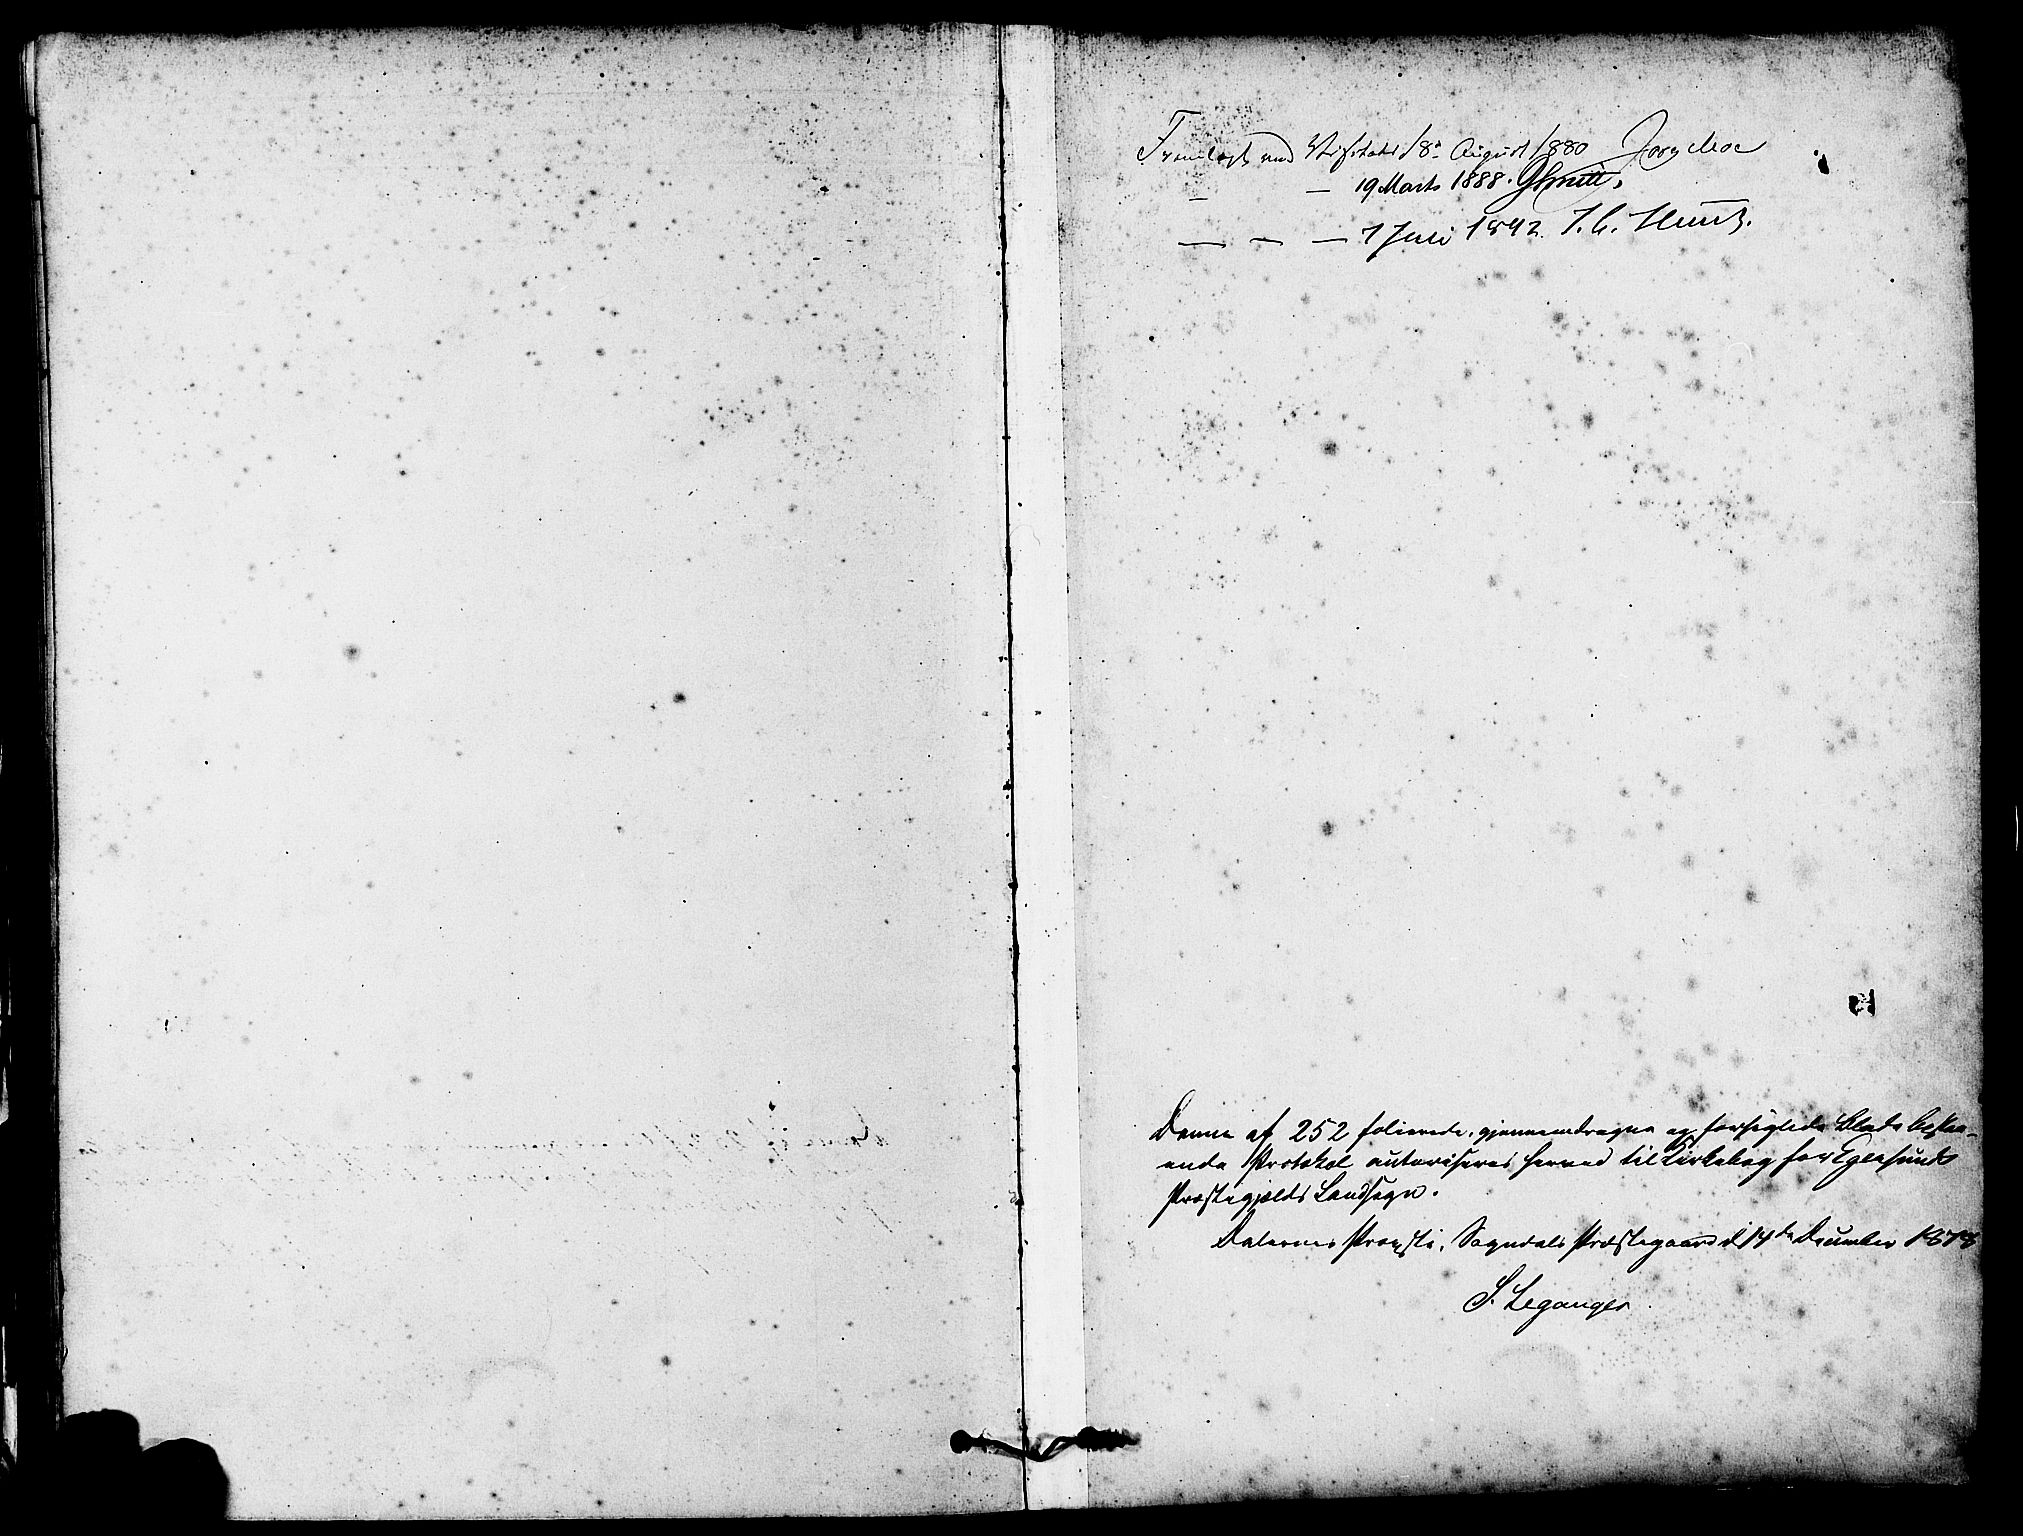 Fremlagt ved Visitats 18de August 1880 Jørg Moe
— — 19 Marts 1888.
— — — 7 Juli 1892. J. C. Heuch.
Denne af 252 folierede, gjennemdragne og forsiglede Blade bestaa-
ende Protokol autoriseres herved til Kirkebog for Egersunds
Præstegjælds Landsogn.
Dalernes Provsti, Sogndals Præstegaard d 14de December 1878
S. Leganger